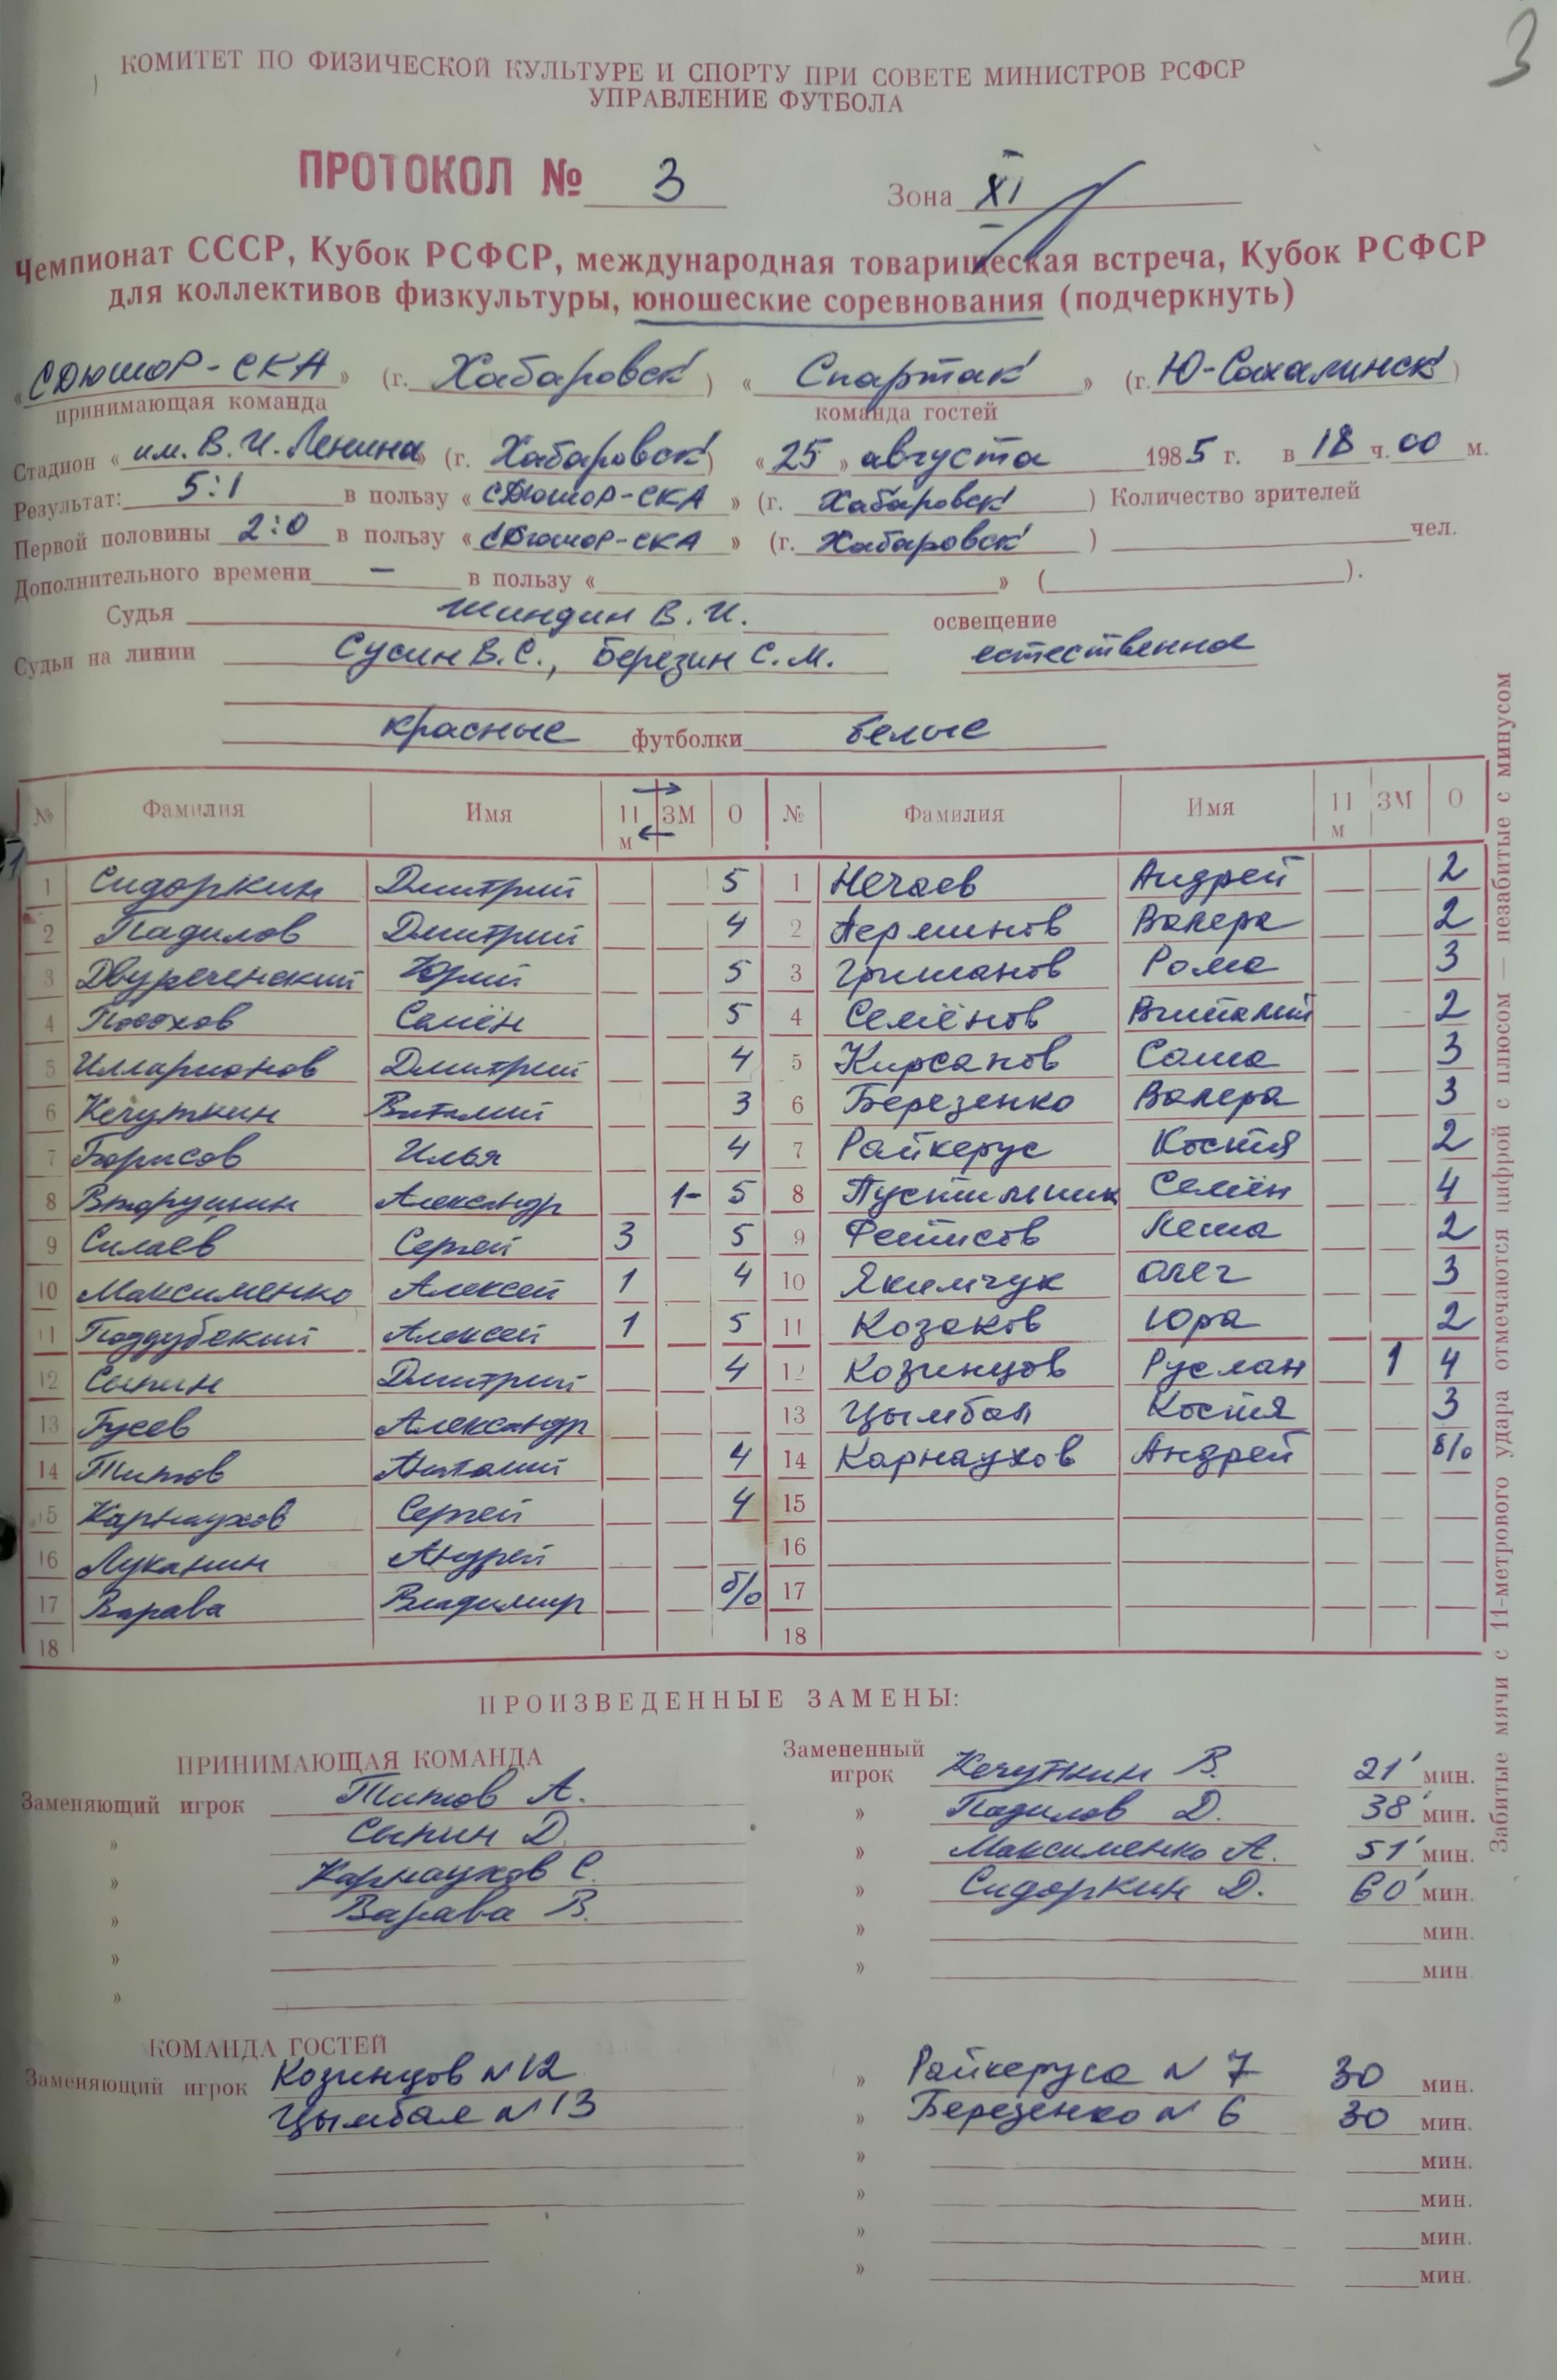 3
КОМИТЕТ ПО ФИЗИЧЕСКОЙ КУЛЬТУРЕ И СПОРТУ ПРИ СОВЕТЕ МИНИСТРОВ РСФСР
УПРАВЛЕНИЕ ФУТБОЛА
ПРОТОКОЛ № 3 Зона XI
Чемпионат СССР, Кубок РСФСР, международная товарищеская встреча, Кубок РСФСР
для коллективов физкультуры, юношеские соревнования (подчеркнуть)
«СДЮШОР-СКА» (г. Хабаровск) «Спартак» (г. Ю-Сахалинск)
принимающая команда команда гостей
Стадион «им. В. И. Ленина» (г. Хабаровск) «25» августа 1985 г. в 18 ч. 00 м.
Результат: 5:1 в пользу «СДЮШОР-СКА» (г. Хабаровск) Количество зрителей
Первой половины 2:0 в пользу «СДЮШОР-СКА» (г. Хабаровск) чел.
Дополнительного времени — в пользу « » ( ).
Судья Шиндин В. И. освещение
Судьи на линии Сусин В.С., Березин С.М. естественное
красные футболки белые
№ Фамилия Имя 11 м ЗМ О № Фамилия Имя 11 м ЗМ О
1 Сидоркин Дмитрий 5 1 Нечаев Андрей 2
2 Падилов Дмитрий 4 2 Валера 2
3 Двуреченский Юрий 5 3 Гришанов Рома 3
4 Посохов Семён 5 4 Семёнов Виталий 2
5 Илларионов Дмитрий 4 5 Кирсанов Саша 3
6 Кечуткин Виталий 3 6 Березенко Валера 3
7 Борисов Илья 4 7 Райкерус Костя 2
8 Вторушин Александр 1- 5 8 Пустыльник Семён 4
9 Силаев Сергей 3 5 9 Фетисов Леша 2
10 Максименко Алексей 1 4 10 Якимчук Олег 3
11 Поддубский Алексей 1 5 11 Козаков Юра 2
12 Сыпин Дмитрий 4 12 Козинцов Руслан 1 4
13 Гусев Александр 13 Цымбал Костя 3
14 Титов Анатолий 4 14 Карнаухов Андрей б/о
15 Карнаухов Сергей 4 15
16 Луканин Андрей 16
17 Варава Владимир б/о 17
18 18
Забитые мячи с 11-метрового удара отмечаются цифрой с плюсом — незабитые с минусом
ПРОИЗВЕДЕННЫЕ ЗАМЕНЫ:
ПРИНИМАЮЩАЯ КОМАНДА
Заменяющий игрок Титов А. Замененный игрок Кечуткин В. 21' мин.
» Сыпин Д. » Падилов Д. 38' мин.
» Карнаухов С. » Максименко А. 51' мин.
» Варава В. » Сидоркин Д. 60' мин.
» » мин.
» » мин.
КОМАНДА ГОСТЕЙ
Заменяющий игрок Козинцов №12 » Райкеруса № 7 30 мин.
Цымбал №13 » Березенко № 6 30 мин.
» мин.
» мин.
» мин.
» мин.